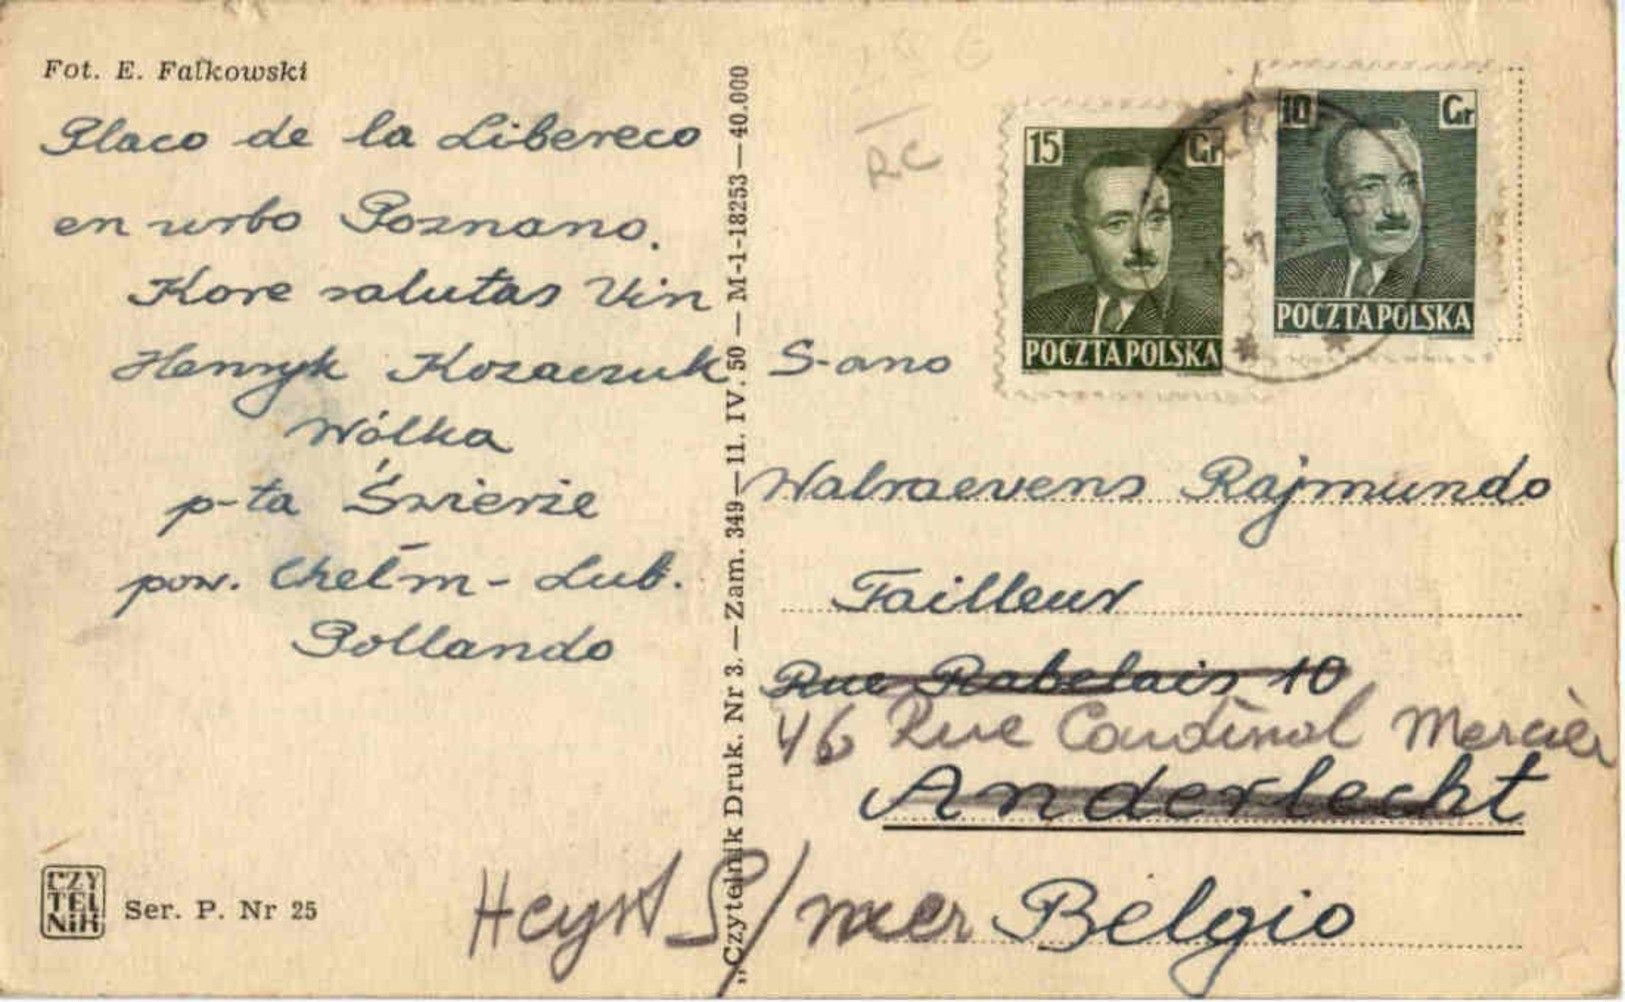 Fot. E. Fałkowski
Placo de la Libereco
en urbo Poznano.
Kore salutas Vin
Henryk Kozaczuk
Wólka
p-ta Świerże
pow. Chełm - Lub.
Pollando
CZY
TEL
NIK
Ser. P. Nr 25
„Czytelnik Druk. Nr 3. — Zam. 349—11. IV. 50 — M-1-18253 — 40.000
RC
15 Gr
POCZTA POLSKA
10 Gr
POCZTA POLSKA
S-ano
Walraevens Rajmundo
Tailleur
Rue Rabelais 10
46 Rue Cardinal Mercier
Anderlecht
Heyst S/mer
Belgio